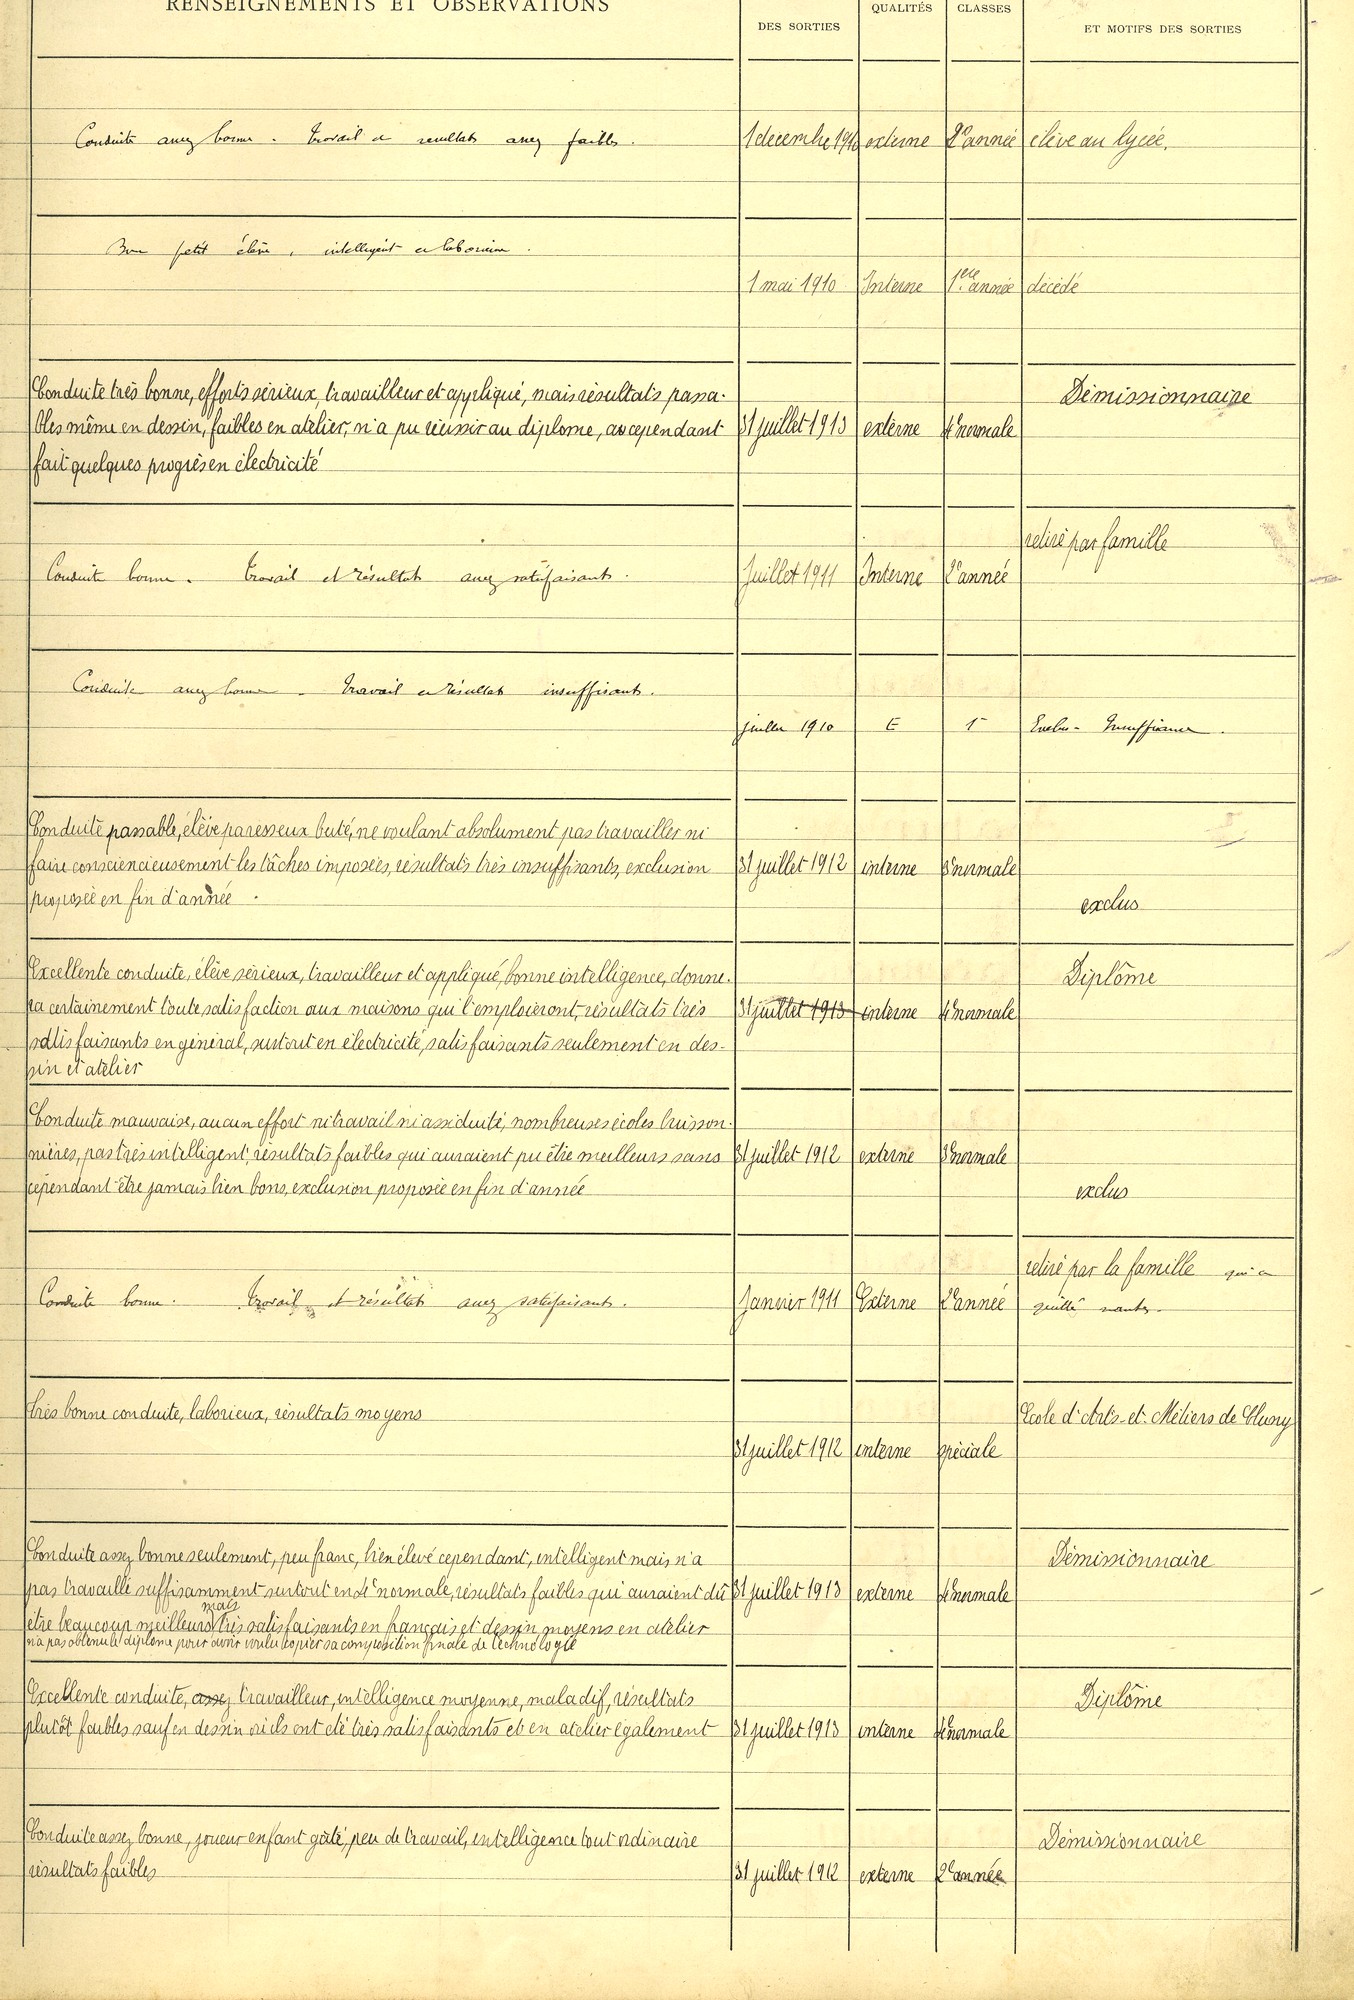 RENSEIGNEMENTS ET OBSERVATIONS
DES SORTIES
QUALITÉS
CLASSES
ET MOTIFS DES SORTIES
Conduite assez bonne. Travail et resultats assez faibles.
1 decembre 1910 externe 2e année élève au lycée.
Bon petit élève, intelligent et laborieux.
1 mai 1910 Interne 1ere année décédé
Conduite très bonne, efforts sérieux, travailleur et appliqué, mais résultats passa-
Démissionnaire
bles même en dessin, faibles en atelier, n'a pu réussir au diplome, a cependant
31 juillet 1913 externe 4e normale
fait quelques progrès en électricité
retiré par famille
Conduite bonne. Travail et résultats assez satisfaisants.
Juillet 1911 Interne 2e année
Conduite assez bonne. Travail et résultats insuffisants.
juillet 1910 E 1e Exclus - Insuffisance.
Conduite passable, élève paresseux buté, ne voulant absolument pas travailler ni
faire consciencieusement les tâches imposées, résultats très insuffisants, exclusion
31 juillet 1912 interne 3e normale
proposée en fin d'année.
exclus
Excellente conduite, élève sérieux, travailleur et appliqué, bonne intelligence, donne-
Diplôme
ra certainement toute satisfaction aux maisons qui l'emploieront, résultats très
31 juillet 1913 interne 4e normale
satisfaisants en général, surtout en électricité, satisfaisants seulement en des-
sin et atelier
Conduite mauvaise, aucun effort ni travail ni assiduité, nombreuses écoles buisson-
nières, pas très intelligent, résultats faibles qui auraient pu être meilleurs sans
31 juillet 1912 externe 3e normale
cependant être jamais bien bons, exclusion proposée en fin d'année
exclus
retiré par la famille qui a
Conduite bonne. Travail et résultats assez satisfaisants.
Janvier 1911 Externe 2e année quitté nantes.
Très bonne conduite, laborieux, résultats moyens
Ecole d'Arts-et-Métiers de Cluny
31 juillet 1912 interne spéciale
Conduite assez bonne seulement, peu franc, bien élevé cependant, intelligent mais n'a
Démissionnaire
pas travaillé suffisamment surtout en 4e normale, résultats faibles qui auraient dû
31 juillet 1913 externe 4e normale
être beaucoup meilleurs mais très satisfaisants en français et dessin, moyens en atelier
n'a pas obtenu le diplome pour avoir voulu copier sa composition finale de technologie
Excellente conduite, assez travailleur, intelligence moyenne, maladif, résultats
Diplôme
plutôt faibles sauf en dessin où ils ont été très satisfaisants et en atelier également
31 juillet 1913 interne 4e normale
Conduite assez bonne, joueur enfant gâté, peu de travail, intelligence tout ordinaire
Démissionnaire
résultats faibles
31 juillet 1912 externe 2e année